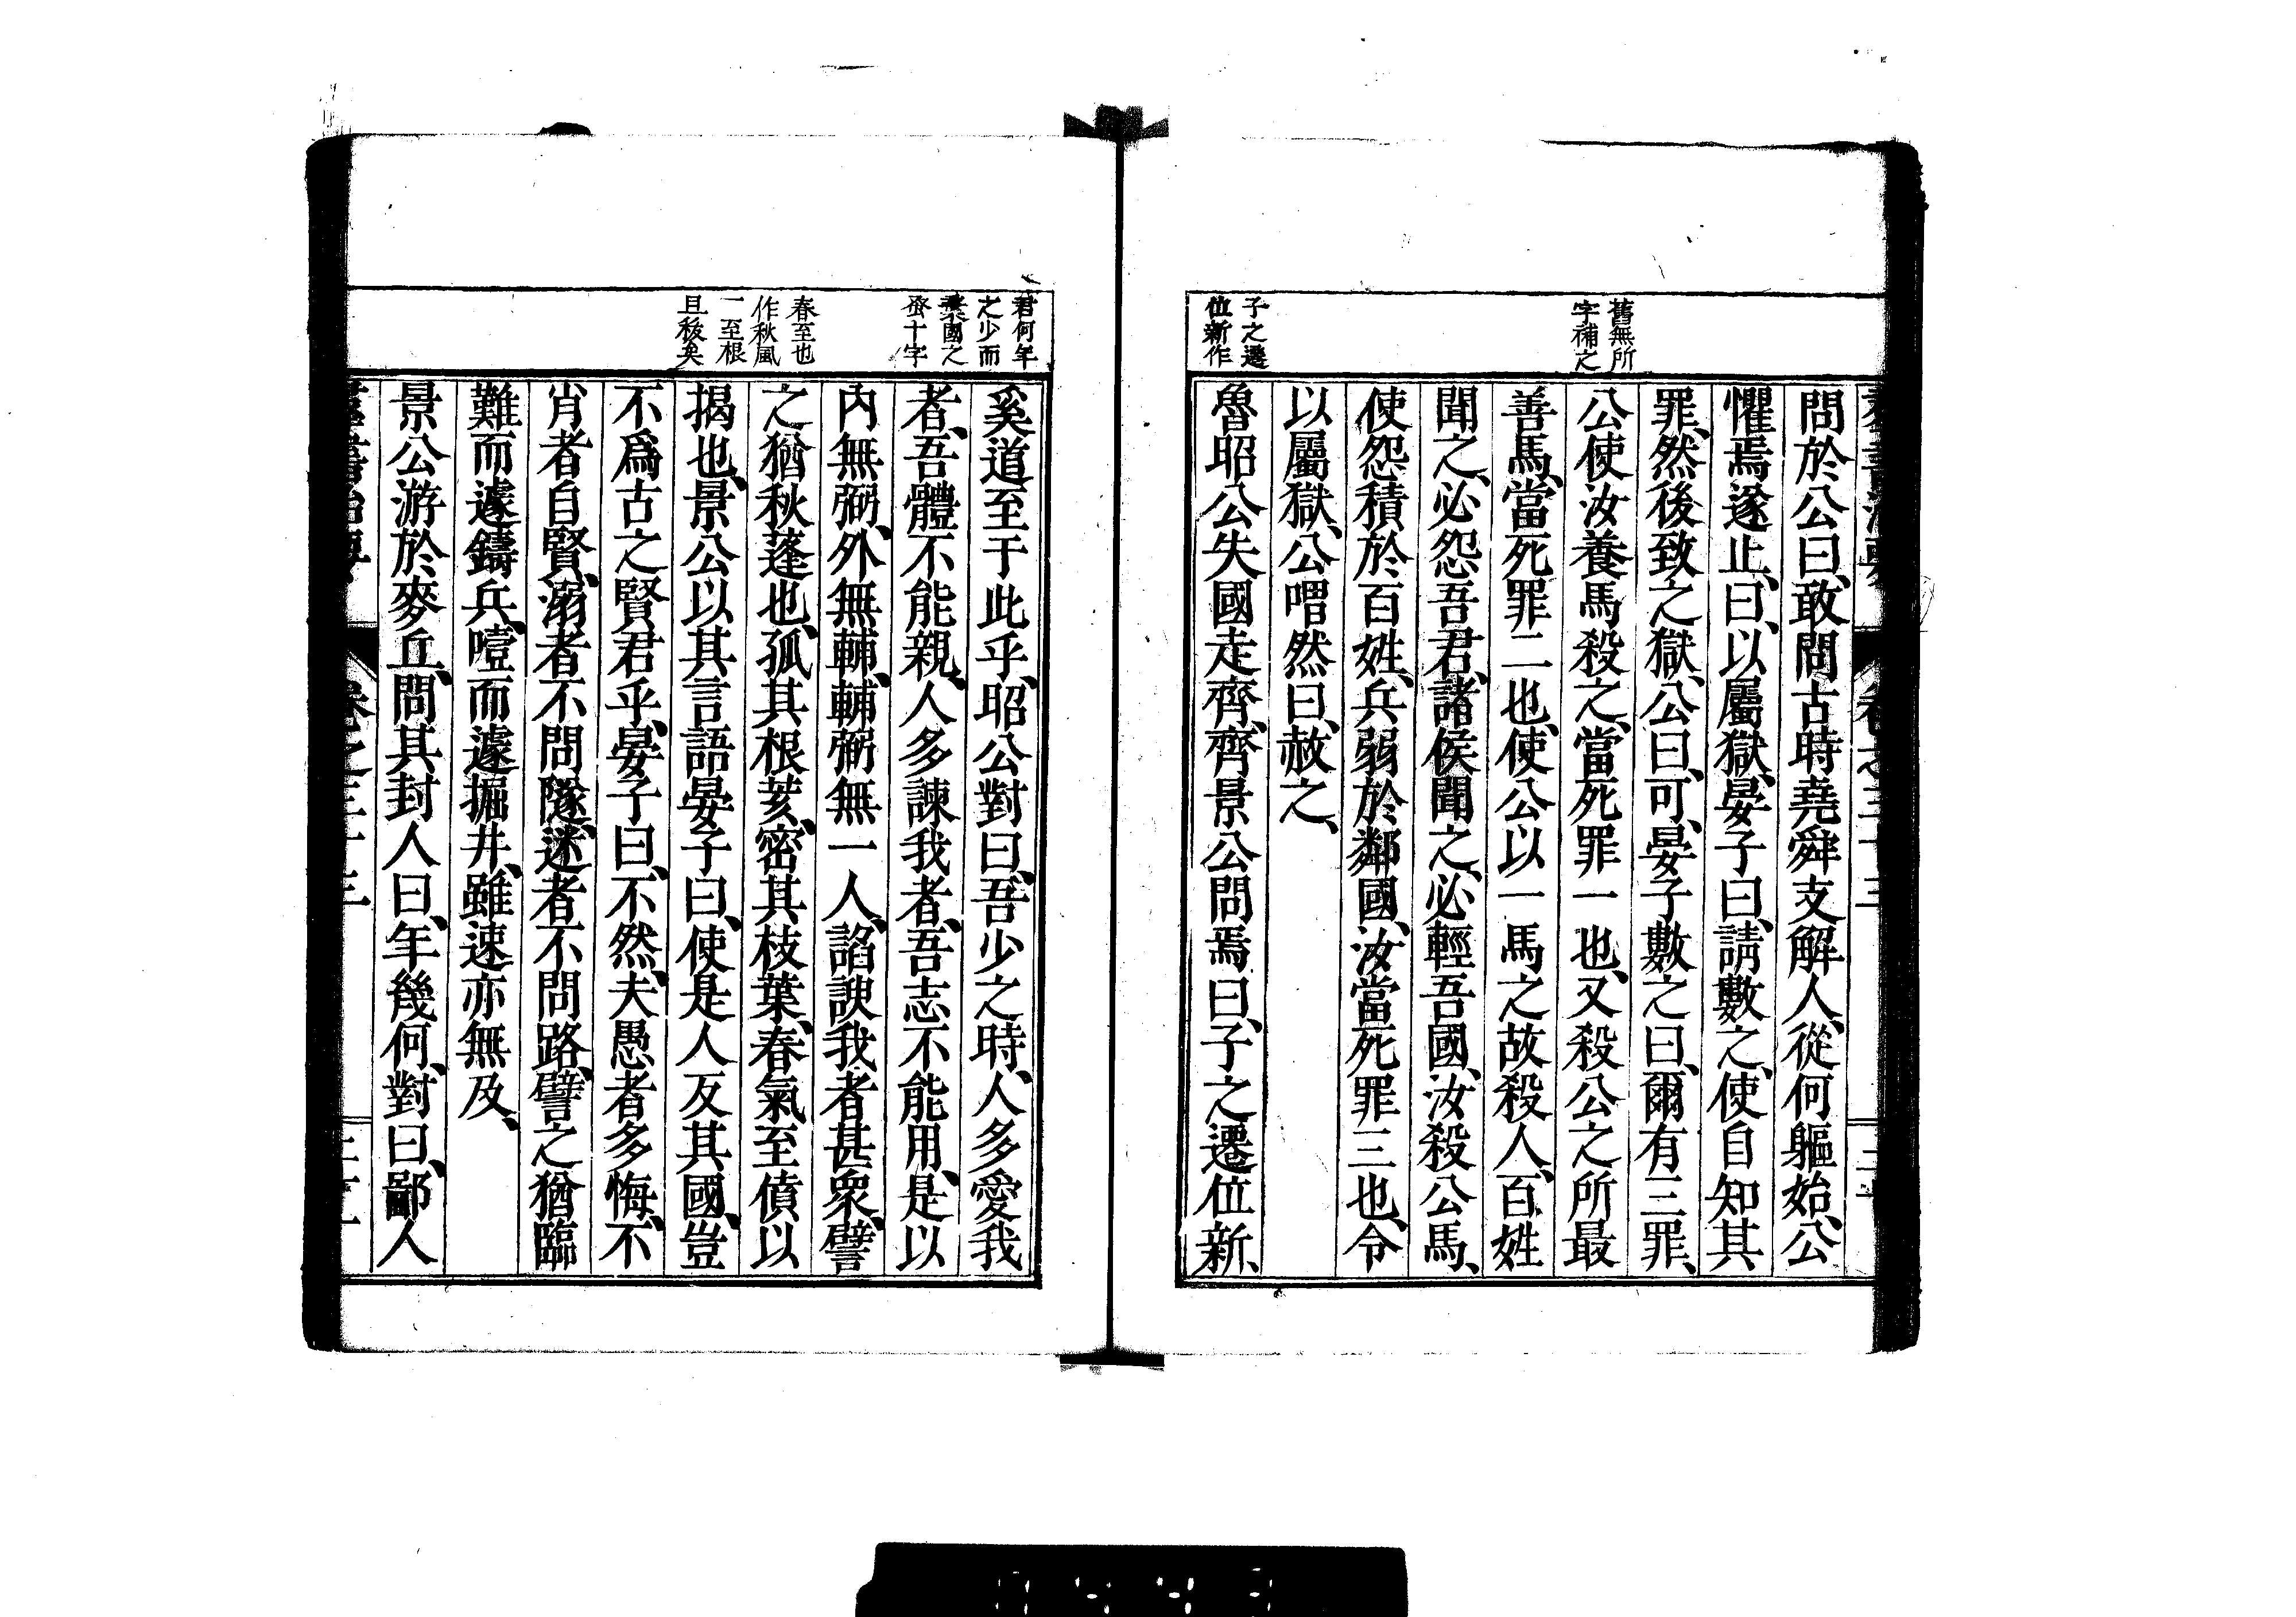 舊無所
字補之
子之遷
位新作
問於公曰、敢問古時堯舜支解人、從何軀始、公
懼焉遂止、曰、以屬獄、晏子曰、請數之、使自知其
罪、然後致之獄、公曰、可、晏子數之曰、爾有三罪、
公使汝養馬殺之、當死罪一也、又殺公之所最
善馬、當死罪二也、使公以一馬之故殺人、百姓
聞之、必怨吾君、諸侯聞之、必輕吾國、汝殺公馬、
使怨積於百姓、兵弱於鄰國、汝當死罪三也、令
以屬獄、公喟然曰、赦之、
魯昭公失國走齊、齊景公問焉曰、子之遷位新、
君何年
之少而
棄國之
蚤十字
春至也
作秋風
一至根
且秡矣
奚道至于此乎、昭公對曰、吾少之時、人多愛我
者、吾體不能親、人多諫我者、吾志不能用、是以
內無弼、外無輔、輔弼無一人、諂諛我者甚衆、譬
之猶秋蓬也、孤其根荄、密其枝葉、春氣至僨以
揭也、景公以其言語晏子曰、使是人反其國、豈
不爲古之賢君乎、晏子曰、不然、夫愚者多悔、不
肖者自賢、溺者不問隧、迷者不問路、譬之猶臨
難而遽鑄兵、噎而遽掘井、雖速亦無及、
景公游於麥丘、問其封人曰、年幾何、對曰、鄙人